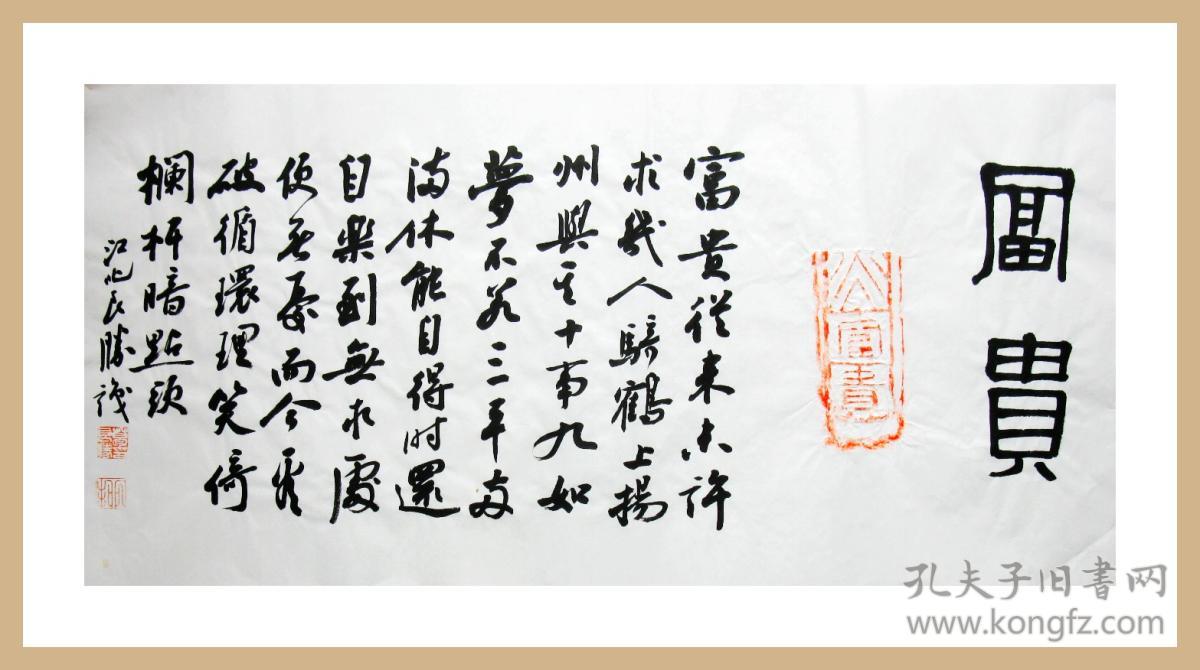 冨貴
富貴從來未許
求幾人騎鶴上揚
州與其十事九如
夢不若三平兩
滿休能自得時還
自樂到無求處
便無憂而今看
破循環理笑倚
欄杆暗點頭
江北民勝識
孔夫子旧書网
www.kongfz.com